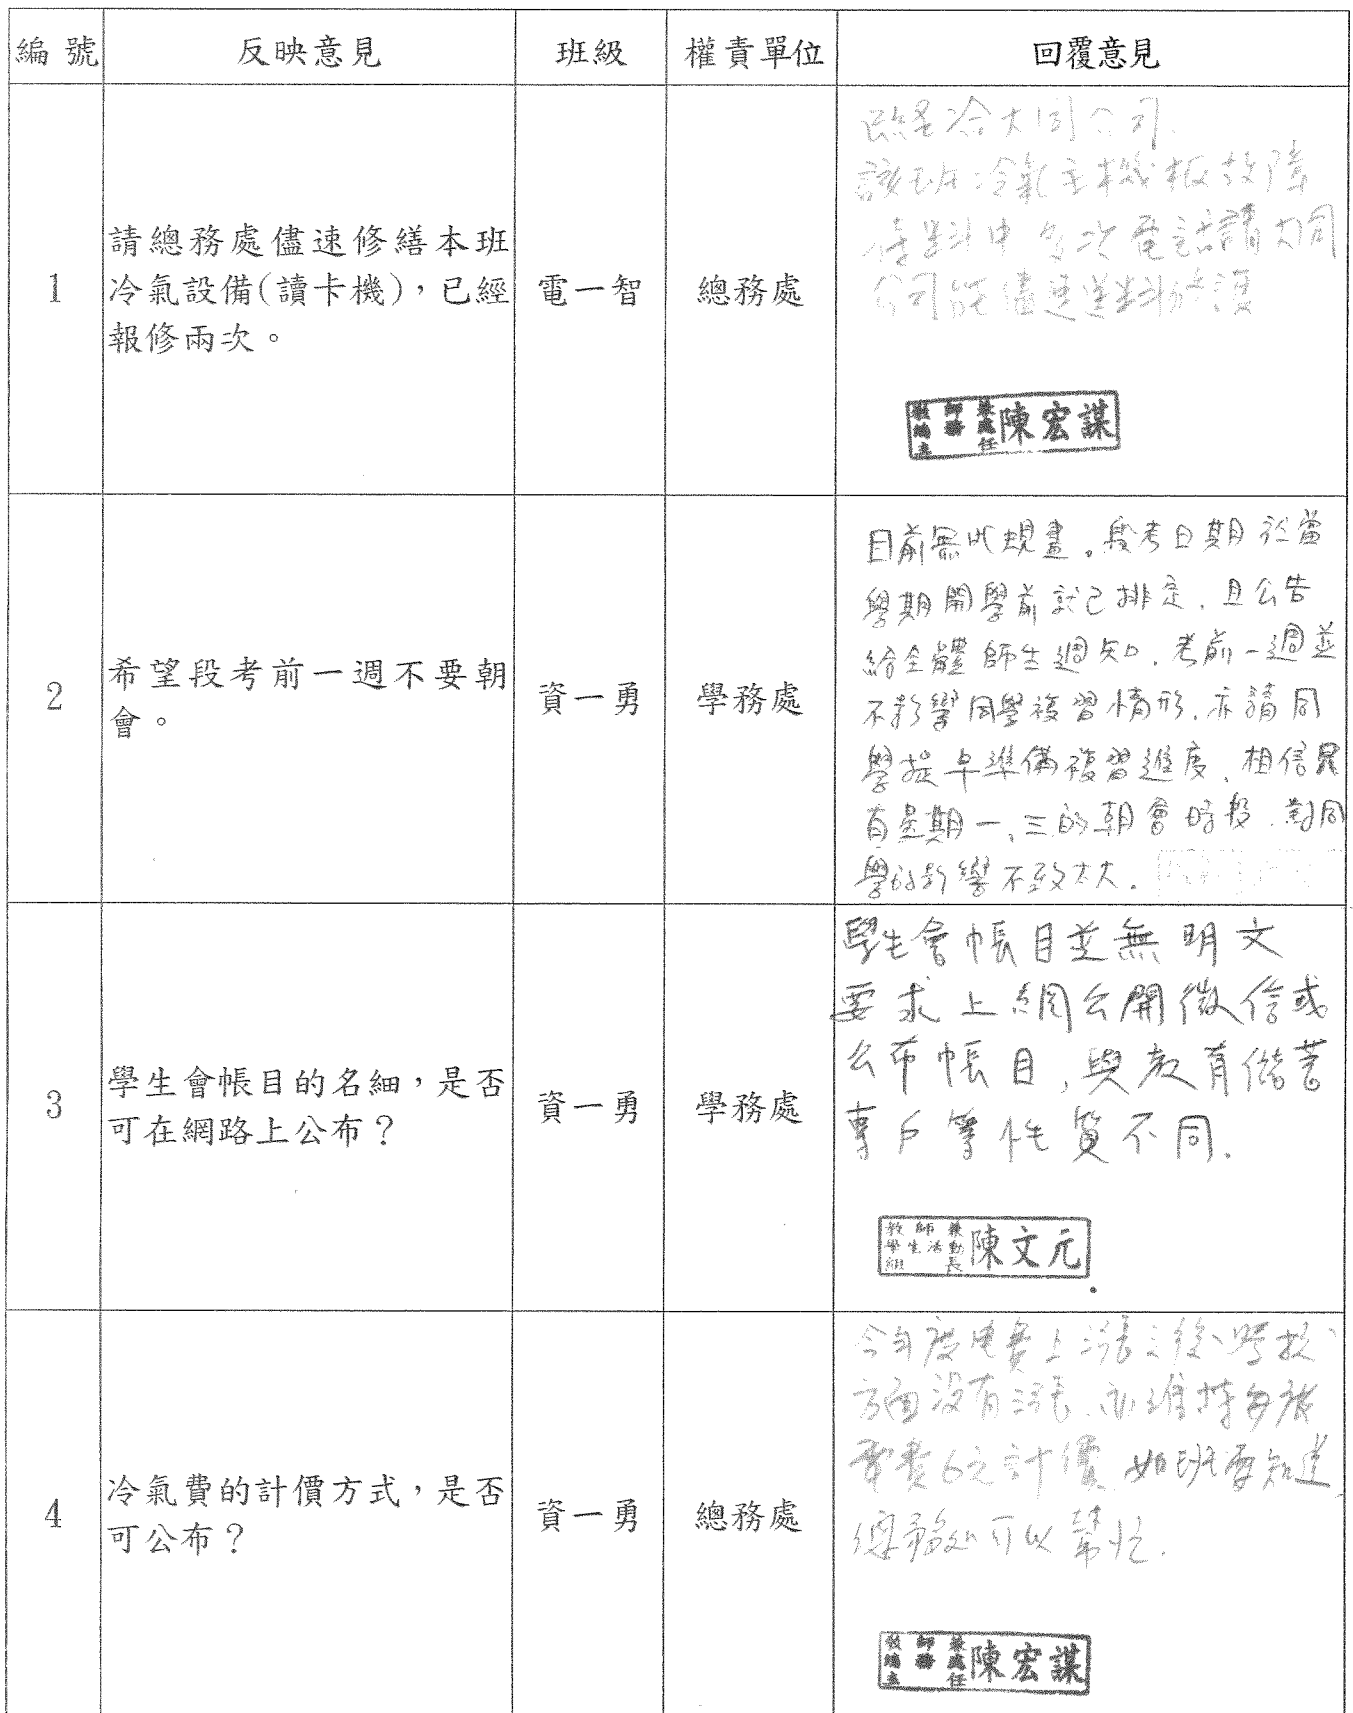 編號 反映意見 班級 權責單位 回覆意見
1
請總務處儘速修繕本班
冷氣設備(讀卡機)，已經
報修兩次。
電一智
總務處
已經洽大同公司.
該班冷氣主機板故障
待料中多次電話請大同
公司能儘速送料修護
教師兼
總務處
主任
陳宏謀
2
希望段考前一週不要朝
會。
資一勇
學務處
目前無此規畫。段考日期於當
學期開學前就已排定、且公告
給全體師生週知、考前一週並
不影響同學複習情形、亦請同
學提早準備複習進度、相信只
有星期一、三的朝會時段、對同
學的影響不致太大.
3
學生會帳目的名細，是否
可在網路上公布？
資一勇
學務處
學生會帳目並無明文
要求上網公開徵信或
公布帳目,與教育儲蓄
專戶等性質不同.
教師兼
學生活動
組長
陳文元
4
冷氣費的計價方式，是否
可公布？
資一勇
總務處
今年度電費上漲之後、學校
方面沒有漲、亦維持每度
電費6元計價 如班要知道
總務處可以幫忙.
教師兼
總務處
主任
陳宏謀